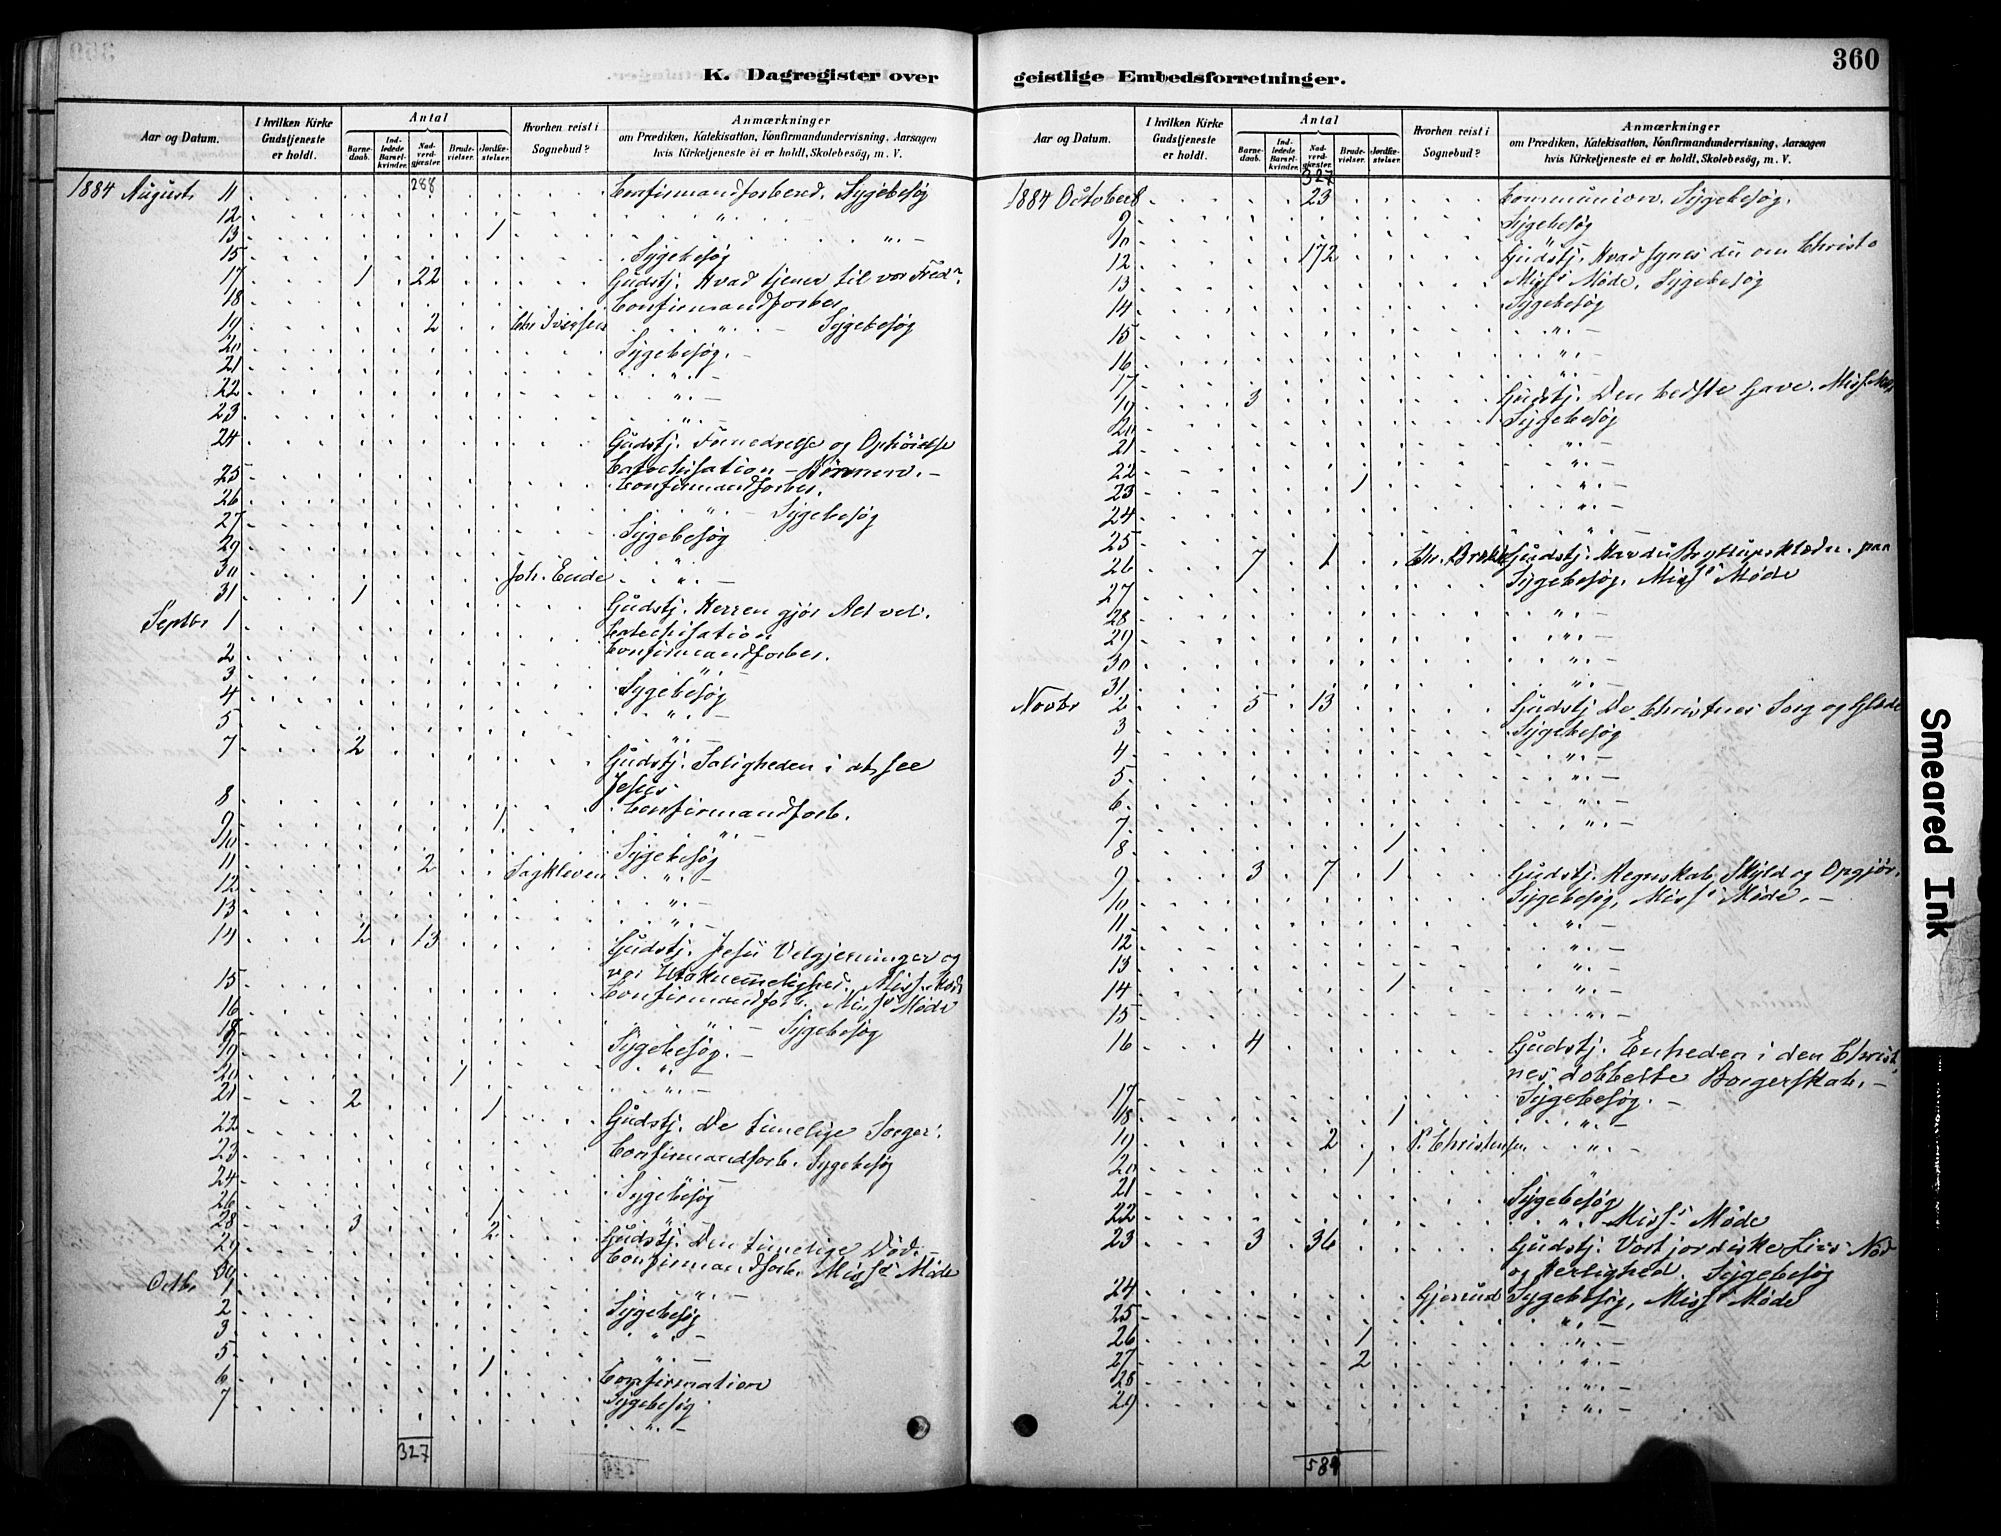 K. Dagregister over
Aar og Datum.
I hvilken Kirke Gudstjeneste er holdt.
Antal
Barnedaab.
Indledede Barselkvinder.
Nadverdgjester.
Brudevielser.
Jordfæstelser.
Hvorhen reist i Sognebud?
Anmærkninger
om Prædiken, Katekisation, Konfirmandundervisning, Aarsagen
hvis Kirketjeneste ei er holdt, Skolebesög, m. V.
288
1884 August 11 Confirmandforbered. Sygebesøg
12 " -
13 1 " -
15 Sygebesøg
17 1 22 Gudstj. Hvad tjener til vor Fred?
18 Confirmandforber.
19 2 Chr Iversen " - Sygebesøg
20 Sygebesøg. -
21 " -
22 " -
23 " -
24 Gudstj. Fornedrelse og Ophöielse
Catechisation -
25 Confirmandforber.
26 " - Sygebesøg
27 Sygebesøg
29
30 Joh. Eude " -
31 1 Gudstj. Herren gjör Alt vel.
Catechisation
Septbr 1 Confirmandforber.
2 "
3 Sygebesøg
4 " -
5 " -
7 2 Gudstj. Saligheden i at see
Jesus.
8 Confirmandforb.
9 1 " -
10 Sygebesøg
11 2 Sagkleven " -
12 " -
13 " -
14 2 13 Gudstj. Jesu Velgjerninger og
vor Utaknemelighed. Miss. Möde
15 Confirmandforb. Miss. Møde
16 " - Sygebesøg
18 Sygebesøg. -
19 " -
20 1 " -
21 2 1 Gudstj. De timelige Sorger.
22 Confirmandforb. Sygebesøg
23 " -
24 Sygebesøg
26 1 "
28 3 2 Gudstj. Den timelige Död. -
29 Confirmandforb. Miss. Møde
30 " -
Octbr 1 Sygebesøg
2 " -
3 " -
5 1 Confirmation
6 Sygebesøg
7 " -
327
360
geistlige Embedsforretninger.
Aar og Datum.
I hvilken Kirke Gudstjeneste er holdt.
Antal
Barnedaab.
Indledede Barselkvinder.
Nadverdgjester.
Brudevielser.
Jordfæstelser.
Hvorhen reist i Sognebud?
Anmærkninger
om Prædiken, Katekisation, Konfirmandundervisning, Aarsagen
hvis Kirketjeneste ei er holdt, Skolebesög, m. V.
327
1884 October 8 23 Communion. Sygebesøg.
9 Sygebesøg
10 "
12 172 Gudstj. Hvad synes du om Christo
13 Miss. Møde, Sygebesøg
14 Sygebesøg
15 " -
16 " -
17 " -
19 3 Gudstj. Den bedste Gave. Miss. Møde
20 Sygebesøg
21 " -
22 " -
23 1 " -
24 " -
25 " -
26 7 1 Gudstj. Har du Bryllupsklæder paa
27 Sygebesøg. Miss. Møde
28 " -
29 " -
30 " -
31 " -
Novbr 2 5 13 Gudstj De Christnes Sorg og Glæde
3 Sygebesøg
4 " -
5 " -
6 " -
7 " -
8 1
9 3 7 1 Gudstj. Regnskab, Skyld og Opgjör.
10 Sygebesøg, Miss. Møde. -
11 " -
12 " -
13 " -
14 1 " -
15 " -
16 4 Gudstj. Enheden i den Christ-
nes dobbelte Borgerskab. -
17 Sygebesøg. -
18 1 " -
19 2 P. Christensen " -
20 1
21 Sygebesøg
22 " Miss. Møde
23 3 36 Gudstj. Vort jordiske Livs Nöd
og Herlighed. Sygebesøg
24 Gjerud Sygebesøg, Miss. Møde
25 " -
26 1 " -
27 2 " -
28 " -
29 " -
584
Smeared Ink